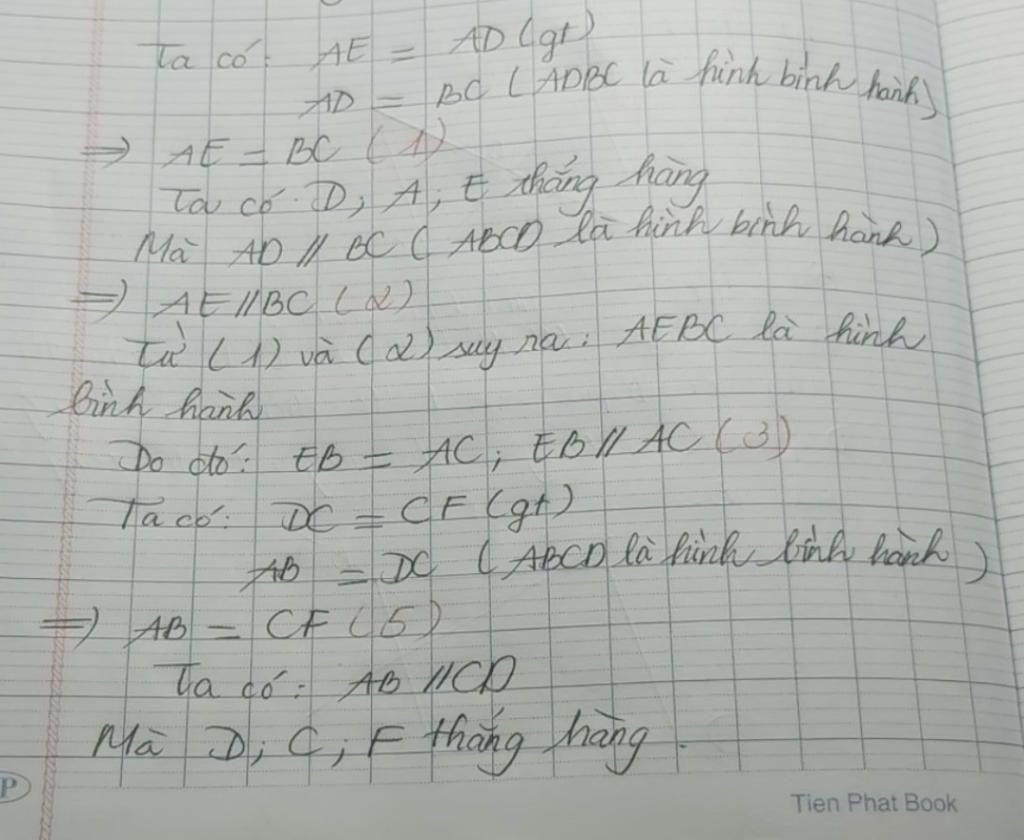 Ta có: AE = AD (gt)
AD = BC ( ADBC là hình bình hành)
=> AE = BC (1)
Ta có D, A, E thẳng hàng
Mà AD // BC ( ABCD là hình bình hành )
=> AE // BC (2)
Từ (1) và (2) suy ra: AEBC là hình
bình hành
Do đó: EB = AC, EB // AC (3)
Ta có: DC = CF (gt)
AB = DC ( ABCD là hình bình hành )
=> AB = CF (5)
Ta có: AB // CD
Mà D, C, F thẳng hàng.
P
Tien Phat Book